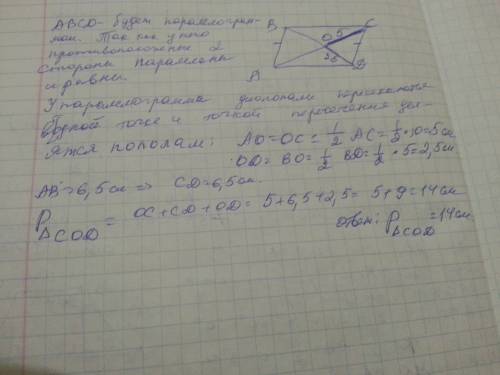 ABCD - будет параллелограм-
мом. Так как у него
противоположные 2
стороны параллельны
и равны.
B C
O 5
2,5
A D
У параллелограмма диагонали пересекаются
в одной точке и точкой пересечения дел-
ятся пополам: AO=OC= 1/2 AC= 1/2 · 10=5см
OD= BO= 1/2 BD= 1/2 · 5=2,5см
AB=6,5см => CD=6,5см.
P△COD = OC+CD+OD= 5+6,5+2,5= 5+9=14см
ответ: P△COD=14см